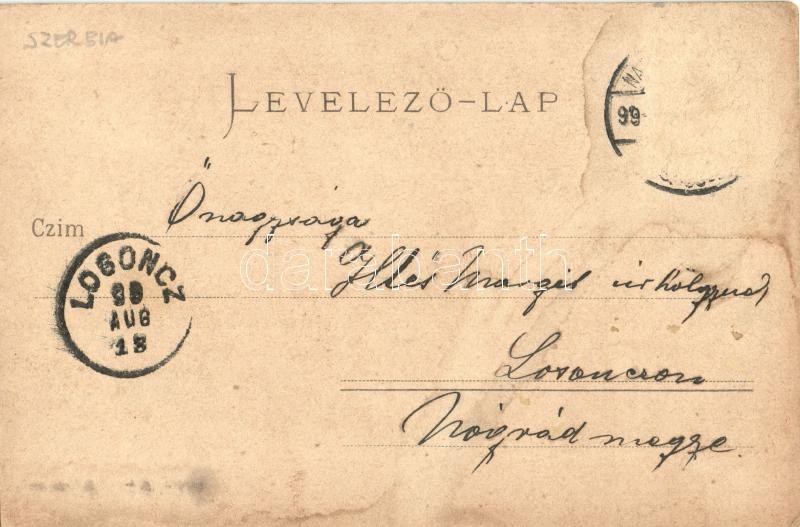 SZERBIA
LEVELEZŐ-LAP
99
Czim
Őnagysága
Illés Margit úrhölgynek
LOSONCZ
99
AUG
13
Losonczon
Nógrád megye